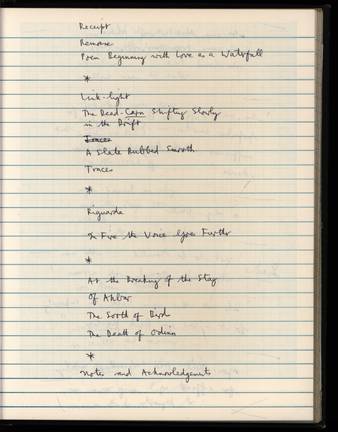 Receipt
Remorse
Poem Beginning with Love as a Waterfall
*
Link-light
The Dead-Cart Shifting Slowly
in the Drift
Traces
A Slate Rubbed Smooth
Traces
*
Riguarda
In Fire the Voice Goes Further
*
At the Breaking of the Stag
Of Akbar
The Sooth of Bird
The Death of Odinn
*
Notes and Acknowledgements